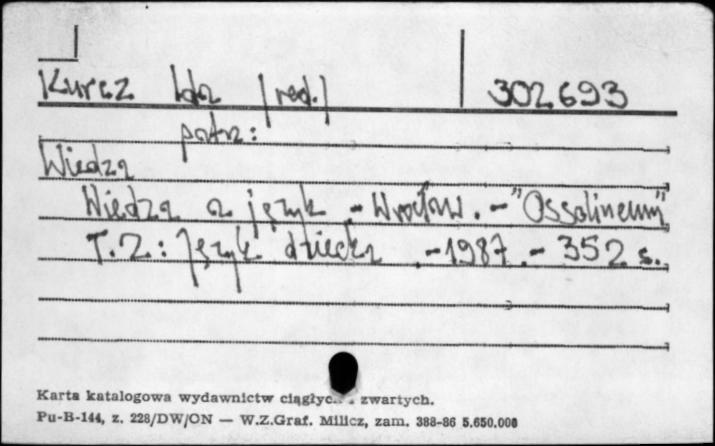 Kurcz Ida /red./ 302693
patrz:
Wiedza
Wiedza a język .- Wrocław .- "Ossolineum"
T.2: Język dziecka .- 1987 .- 352 s.
Karta katalogowa wydawnictw ciągłych i zwartych.
Pu-B-144, z. 228/DW/ON — W.Z.Graf. Milicz, zam. 388-86 5.650.000